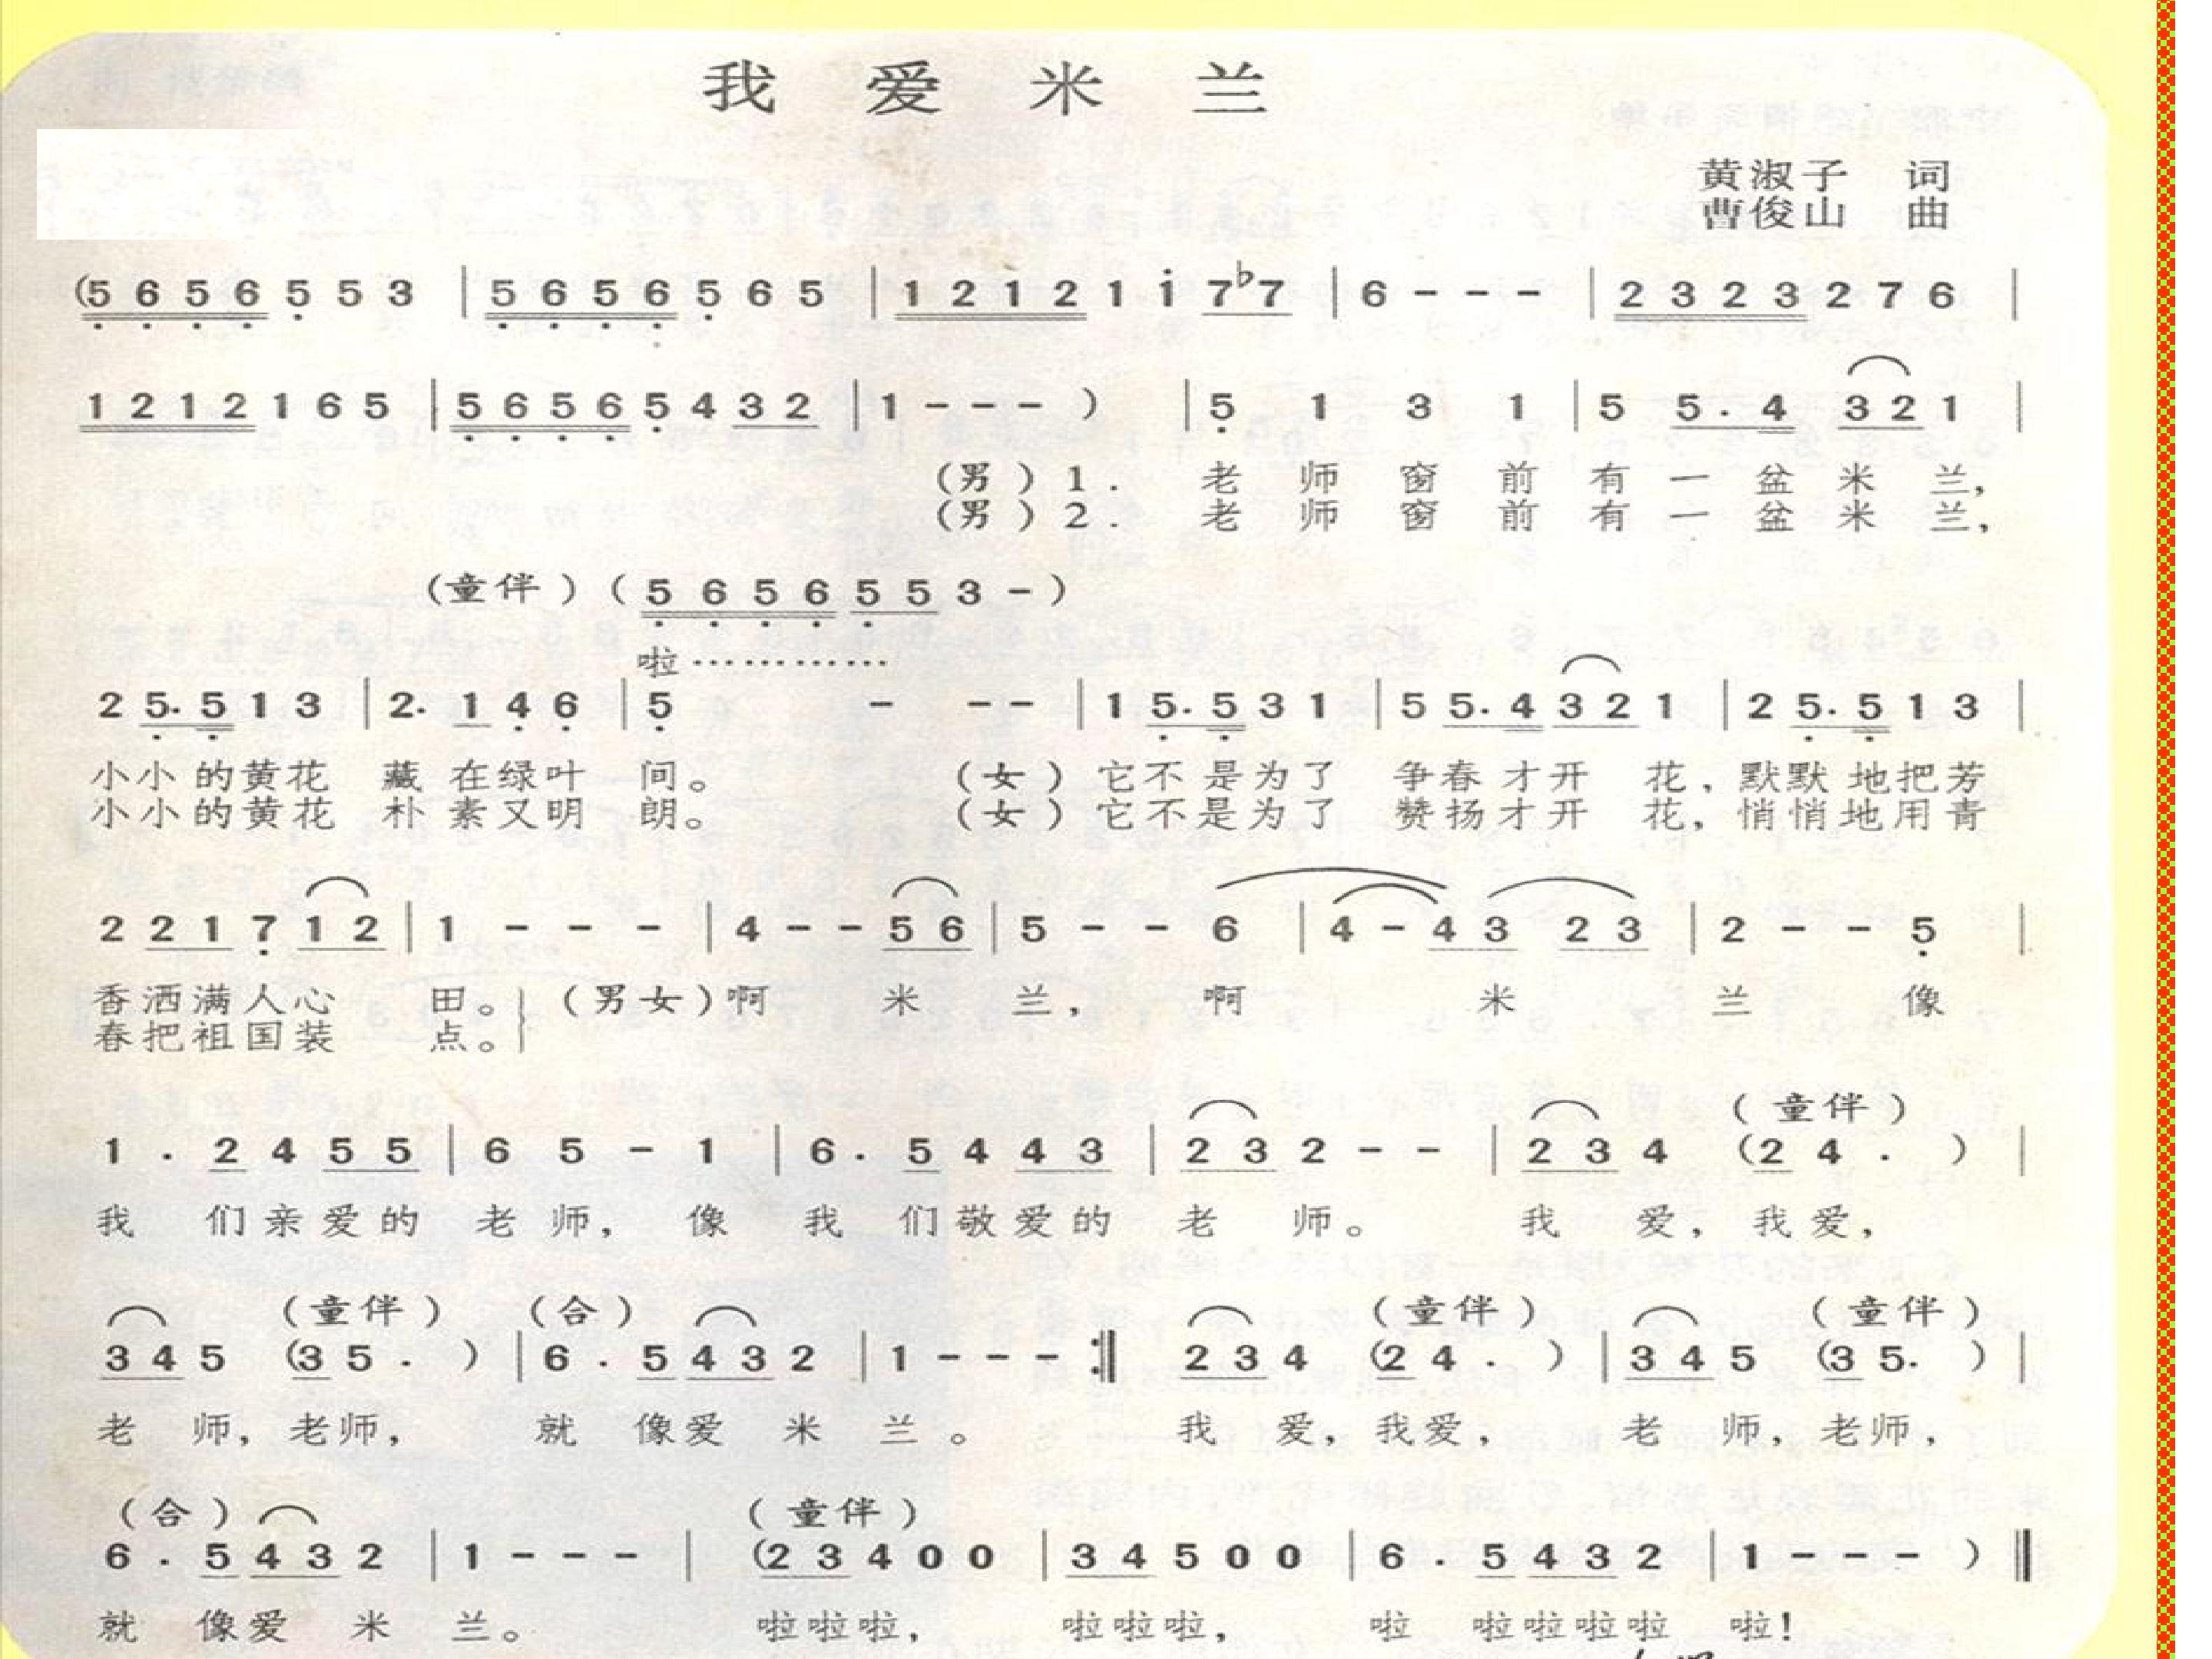 我爱米兰
黄淑子 词
曹俊山 曲
(5 6 5 6 5 5 3 | 5 6 5 6 5 6 5 | 1 2 1 2 1 i 7 ♭7 | 6 - - - | 2 3 2 3 2 7 6 |
1 2 1 2 1 6 5 | 5 6 5 6 5 4 3 2 | 1 - - - ) | 5 1 3 1 | 5 5 . 4 3 2 1 |
(男) 1. 老师窗前有一盆米兰,
(男) 2. 老师窗前有一盆米兰,
(童伴) ( 5 6 5 6 5 5 3 - )
啦…………
2 5. 5 1 3 | 2. 1 4 6 | 5 - - - | 1 5. 5 3 1 | 5 5. 4 3 2 1 | 2 5. 5 1 3 |
小小的黄花 藏在绿叶间。 (女) 它不是为了 争春才开花, 默默地把芳
小小的黄花 朴素又明朗。 (女) 它不是为了 赞扬才开花, 悄悄地用青
2 2 1 7 1 2 | 1 - - - | 4 - - 5 6 | 5 - - 6 | 4 - 4 3 2 3 | 2 - - 5 |
香洒满人心 田。 (男女) 啊 米 兰, 啊 米 兰 像
春把祖国装 点。
(童伴)
1 . 2 4 5 5 | 6 5 - 1 | 6. 5 4 4 3 | 2 3 2 - - | 2 3 4 (2 4 . ) |
我 们亲爱的 老师, 像 我 们敬爱的 老 师。 我 爱, 我爱,
(童伴) (合) (童伴) (童伴)
3 4 5 (3 5 . ) | 6 . 5 4 3 2 | 1 - - - :‖ 2 3 4 (2 4 . ) | 3 4 5 (3 5. ) |
老 师, 老师, 就 像爱 米 兰。 我 爱, 我爱, 老 师, 老师,
(合) (童伴)
6 . 5 4 3 2 | 1 - - - | (2 3 4 0 0 | 3 4 5 0 0 | 6 . 5 4 3 2 | 1 - - - ) ‖
就 像爱 米 兰。 啦啦啦, 啦啦啦, 啦 啦啦啦啦 啦!